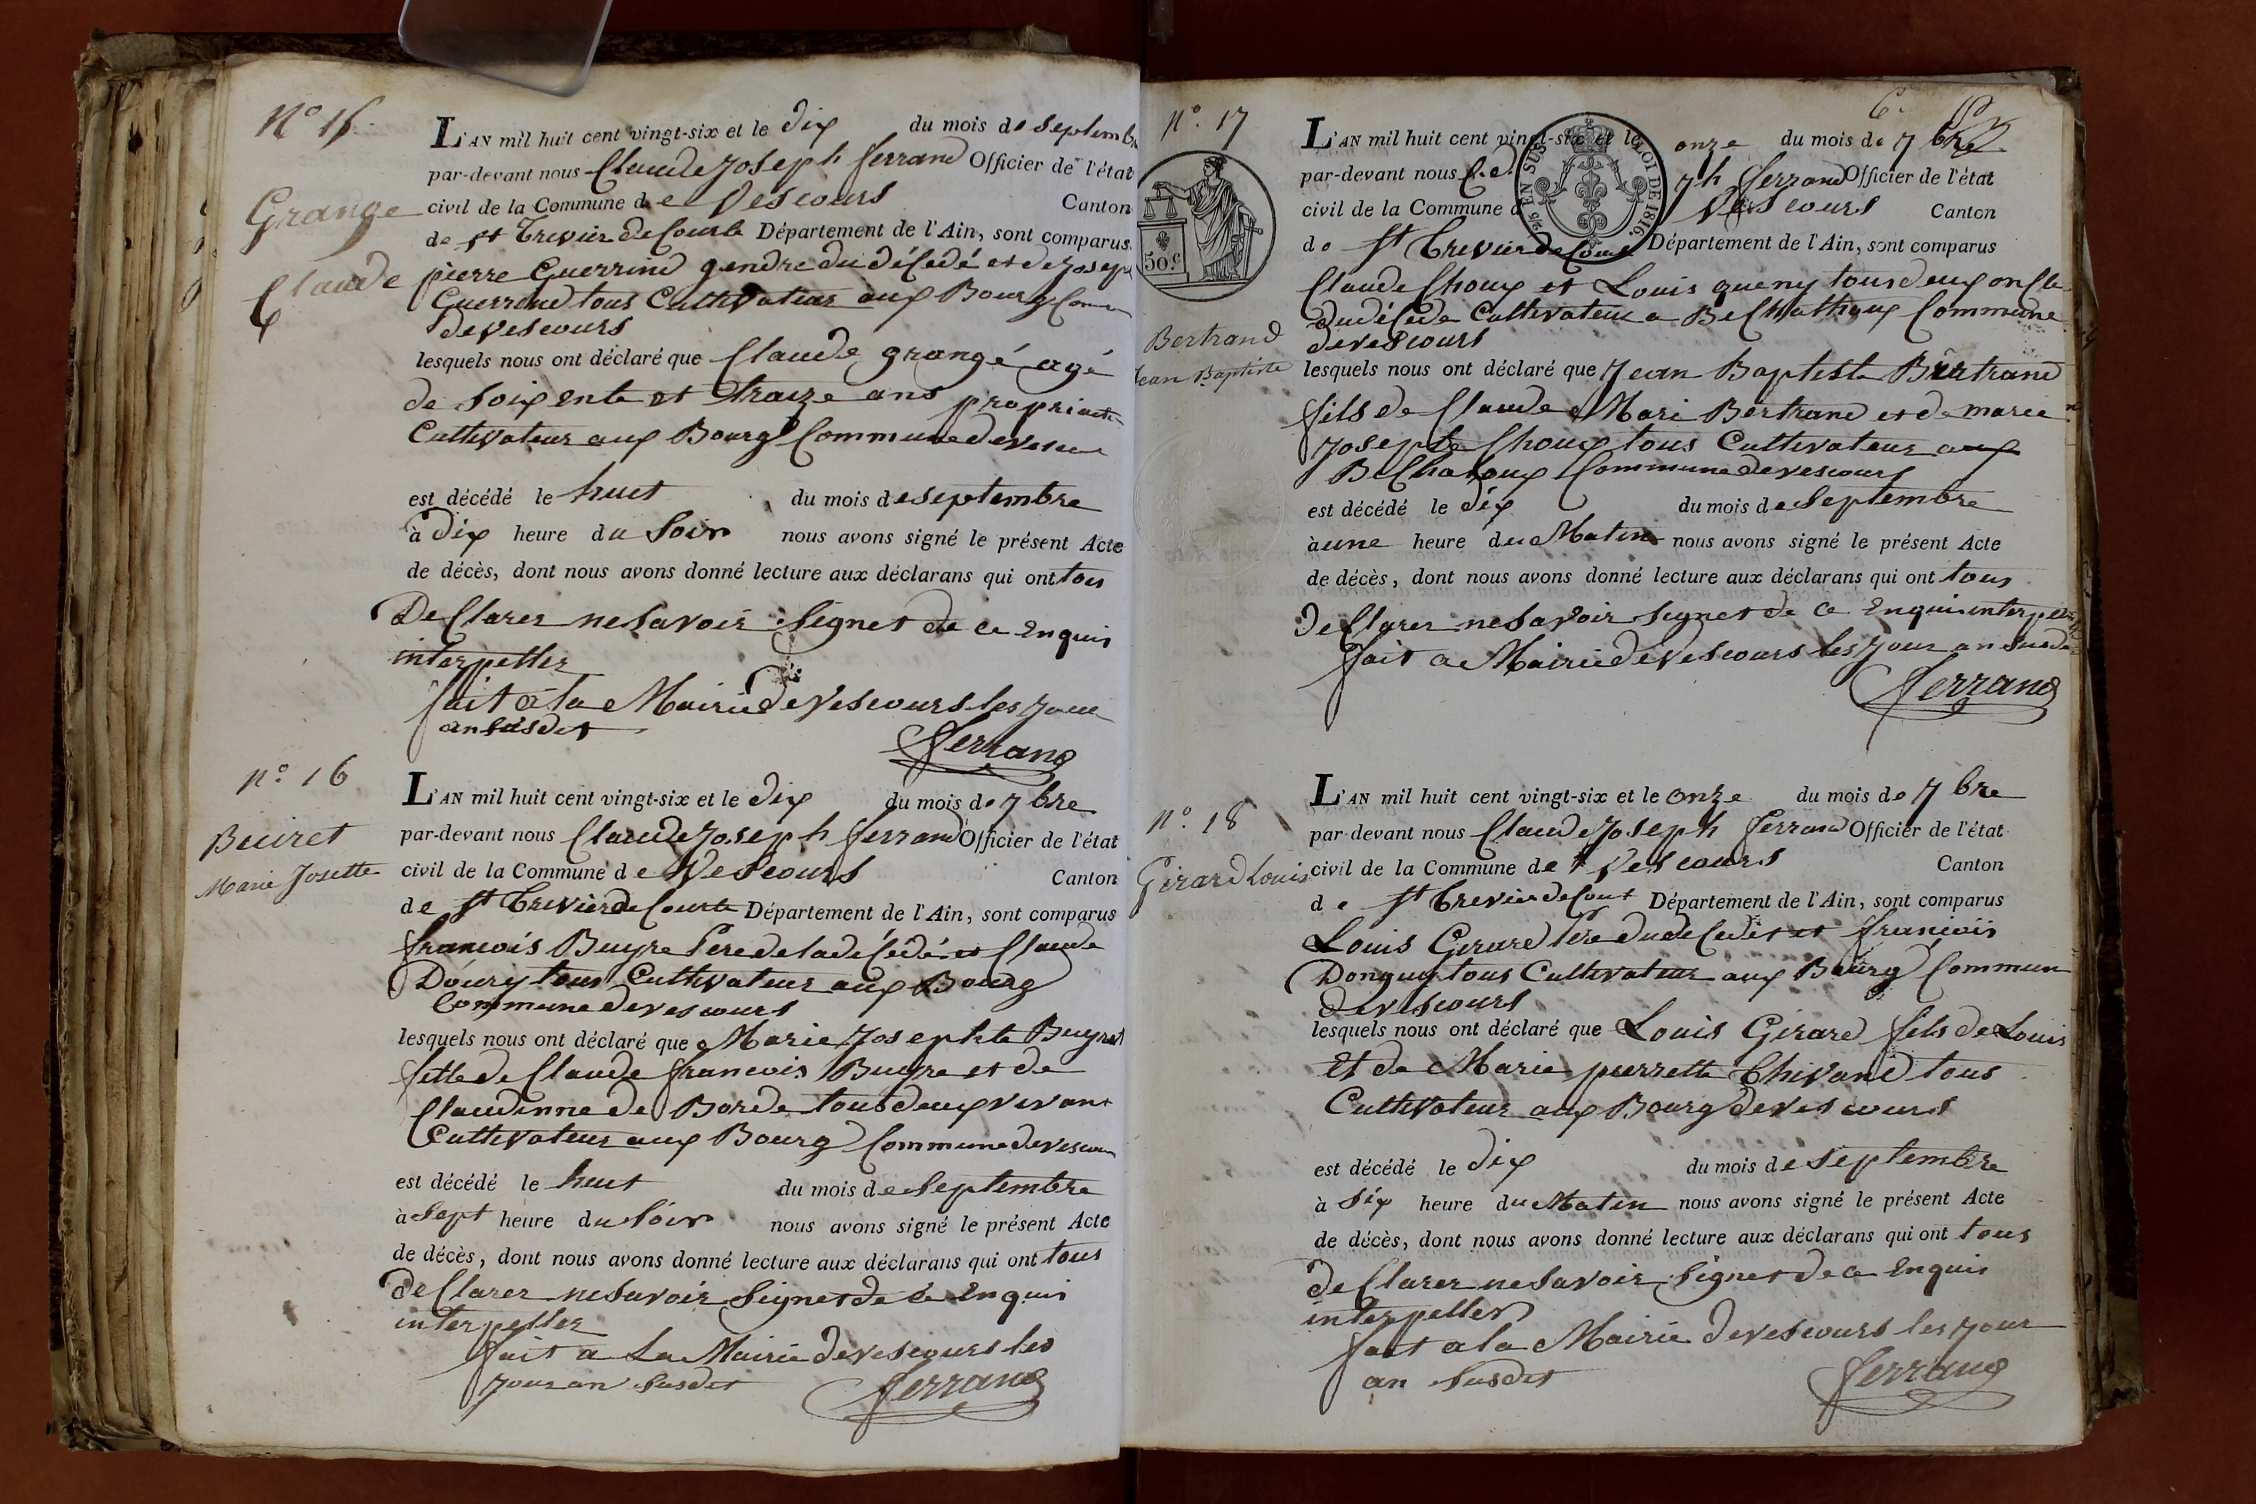 N.º 15.
Grange
Claude
L'AN mil huit cent vingt-six et le dix du mois de Septemb
par-devant nous Claude Joseph ferrand Officier de l'état
civil de la Commune de Vescours Canton
de St Trevier de Courte Département de l'Ain, sont comparus
pierre Guerrind gendre du décédé et de Joseph
Guerrind tous Cultivateur aux Bourg Comm
de vescours
lesquels nous ont déclaré que Claude grangé agé
de Soixente et traize ans propriaite
Cultivateur aux Bourg Commune de vescou
est décédé le huit du mois de septembre
à dix heure du Soir nous avons signé le présent Acte
de décès, dont nous avons donné lecture aux déclarans qui ont tous
De Clarer ne Savoir Signer de ce Enquis
interpeller
fait a la Mairie de Vescours les Jour
an susdit
ferrand
n.º 16
Beuiret
Marie Josette
L'AN mil huit cent vingt-six et le dix du mois de 7 bre
par-devant nous Claude Joseph ferrand Officier de l'état
civil de la Commune de Vescours Canton
de St Trevier de Courte Département de l'Ain, sont comparus
francois Buyre Pere de la décédé et Claude
Doury tous Cultivateur aux Bourg
Commune de vescours
lesquels nous ont déclaré que Marie Josephte Buyret
fille de Claude francois Buyre et de
Claudinne de Borde tous deux vivant
Cultivateur aux Bourg Commune de vescou
est décédé le huit du mois de Septembre
à Sept heure du Soir nous avons signé le présent Acte
de décès, dont nous avons donné lecture aux déclarans qui ont tous
de Clarer ne Savoir Signer de ce Enquis
interpeller
fait a La Mairie de vescours les
Jour an susdit
ferrand
6.
n.º 17
50 c
5/c EN SUS
LOI DE 1816.
Bertrand
Jean Baptiste
L'AN mil huit cent vingt-six et le onze du mois de 7 bre
par-devant nous C.d. Jh ferrand Officier de l'état
civil de la Commune d Vescours Canton
de St Trevier de Court Département de l'Ain, sont comparus
Claude Choux et Louis queny tous deux oncle
du décédé Cultivateur a BeChattaux Commune
de vescours
lesquels nous ont déclaré que Jean Baptiste Bertrand
fils de Claude Mari Bertrand et de marie
Josephte Choux tous Cultivateur aux
BeChataux Commune de vescours
est décédé le dix du mois de Septembre
à une heure du Matin nous avons signé le présent Acte
de décès, dont nous avons donné lecture aux déclarans qui ont tous
de Clarer ne Savoir Signer de ce Enquis interpeller
fait a Mairie de Vescours les Jour an susdit
ferrand
n.º 18
Girard Louis
L'AN mil huit cent vingt-six et le onze du mois de 7 bre
par-devant nous Claude Joseph ferrand Officier de l'état
civil de la Commune de Vescours Canton
de St Trevier de Court Département de l'Ain, sont comparus
Louis Girard Pere du décédé et francois
Donguy tous Cultivateur aux Bourg Commun
de vescours
lesquels nous ont déclaré que Louis Girard fils de Louis
Et de Marie pierrette Chivand tous
Cultivateur aux Bourg de vescours
est décédé le dix du mois de septembre
à six heure du Matin nous avons signé le présent Acte
de décès, dont nous avons donné lecture aux déclarans qui ont tous
de Clarer ne Savoir Signer de ce Enquis
interpeller
fait a la Mairie de vescours les Jour
an susdit
ferrand